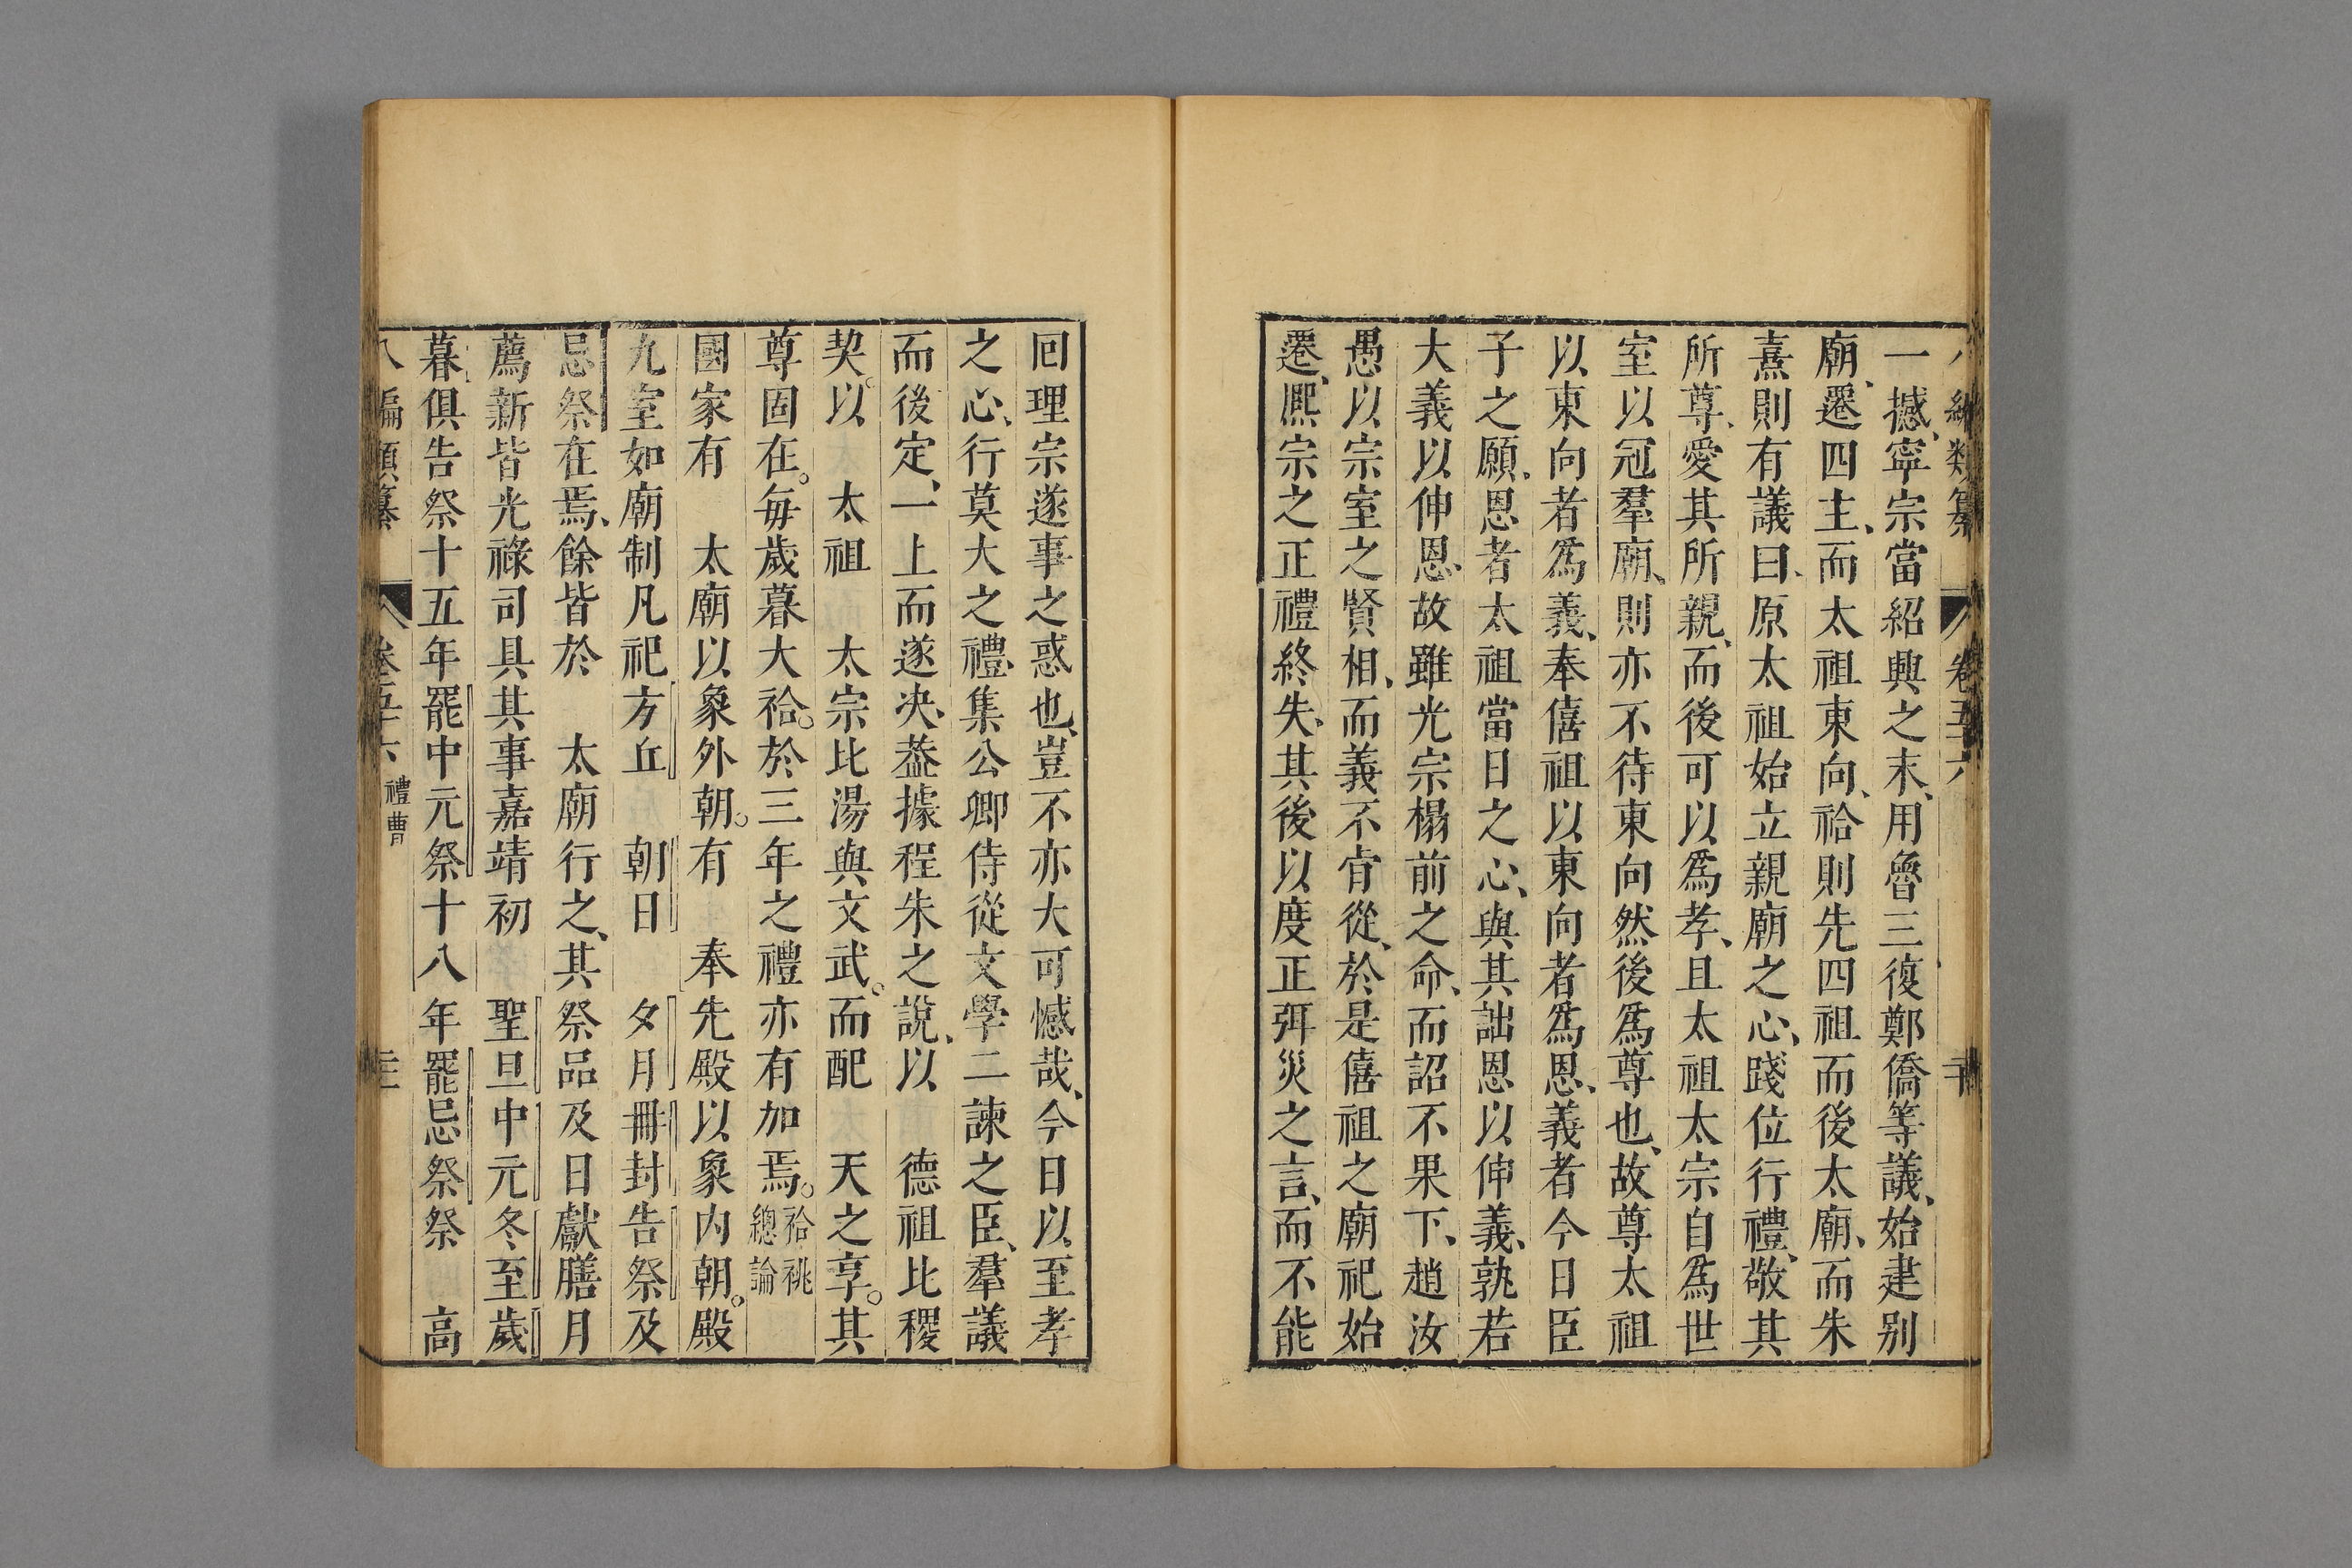 八編類纂 卷五十六 二十
一憾、寧宗當紹興之末、用魯三復鄭僑等議、始建别
廟、遷四主、而太祖東向、祫則先四祖而後太廟、而朱
熹則有議曰、原太祖始立親廟之心、踐位行禮、敬其
所尊、愛其所親、而後可以爲孝、且太祖太宗自爲世
室以冠羣廟、則亦不待東向然後爲尊也、故尊太祖
以東向者爲義、奉僖祖以東向者爲恩、義者今日臣
子之願、恩者太祖當日之心、與其詘恩以伸義、孰若
大義以伸恩、故雖光宗榻前之命、而詔不果下、趙汝
愚以宗室之賢相、而義不肯從、於是僖祖之廟祀始
遷、熈宗之正禮終失、其後以度正弭災之言、而不能
囘理宗遂事之惑也、豈不亦大可憾哉、今日以至孝
之心、行莫大之禮、集公卿侍從文學二諫之臣、羣議
而後定、一上而遂決、葢據程朱之說、以 德祖比稷
契。以 太祖 太宗比湯與文武。而配 天之享。其
尊固在。毎歲暮大祫。於三年之禮亦有加焉。祫祧總論
國家有 太廟以象外朝。有 奉先殿以象内朝。殿
九室如廟制凡祀方丘 朝日 夕月冊封告祭及
忌祭在焉、餘皆於 太廟行之、其祭品及日獻膳月
薦新皆光祿司具其事嘉靖初 聖旦中元冬至歲
暮俱告祭十五年罷中元祭十八年罷忌祭祭 高
八編類纂 卷五十六 禮曹 二十一